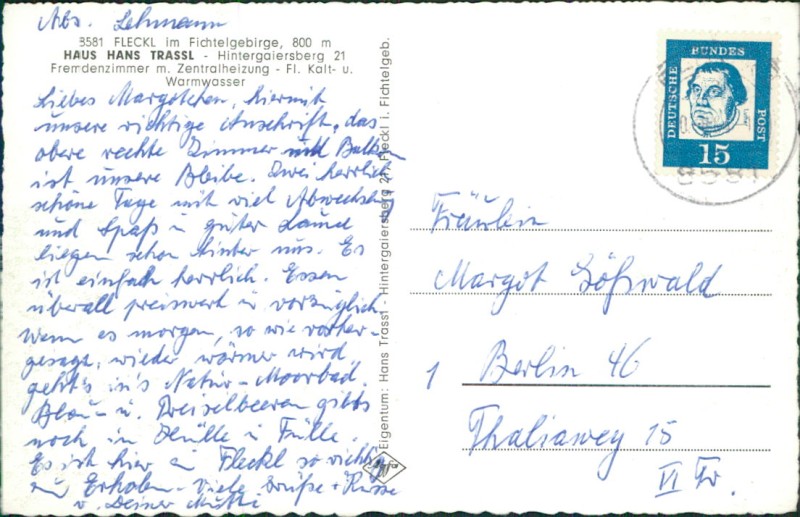 Abs. Lehmann
8581 FLECKL im Fichtelgebirge, 800 m
HAUS HANS TRASSL - Hintergaiersberg 21
Fremdenzimmer m. Zentralheizung - Fl. Kalt- u.
Warmwasser
Liebes Margotchen, hiermit
unsere richtige Anschrift, das
obere rechte Zimmer mit Balkon
ist unsere Bleibe. Zwei herrlich
schöne Tage mit viel Abwechslg
und Spaß in guter Laune
liegen schon hinter uns. Es
ist einfach herrlich. Essen
überall preiswert u. vorzüglich.
Wenn es morgen, so wie vorher-
gesagt, wieder wärmer wird,
geht's in's Natur-Moorbad.
Blau- u. Preiselbeeren gibts
noch in Hülle u. Fülle.
Es ist hier in Fleckl so richtig
zum Erholen. Viele Grüße + Küsse
v. Deiner Mutti
Eigentum: Hans Trassl - Hintergaiersberg 21, Fleckl i. Fichtelgeb.
DEUTSCHE BUNDES POST
15
8581
Fräulein
Margot Gößwald
1 Berlin 46
Thaliaweg 15
VI Tr.